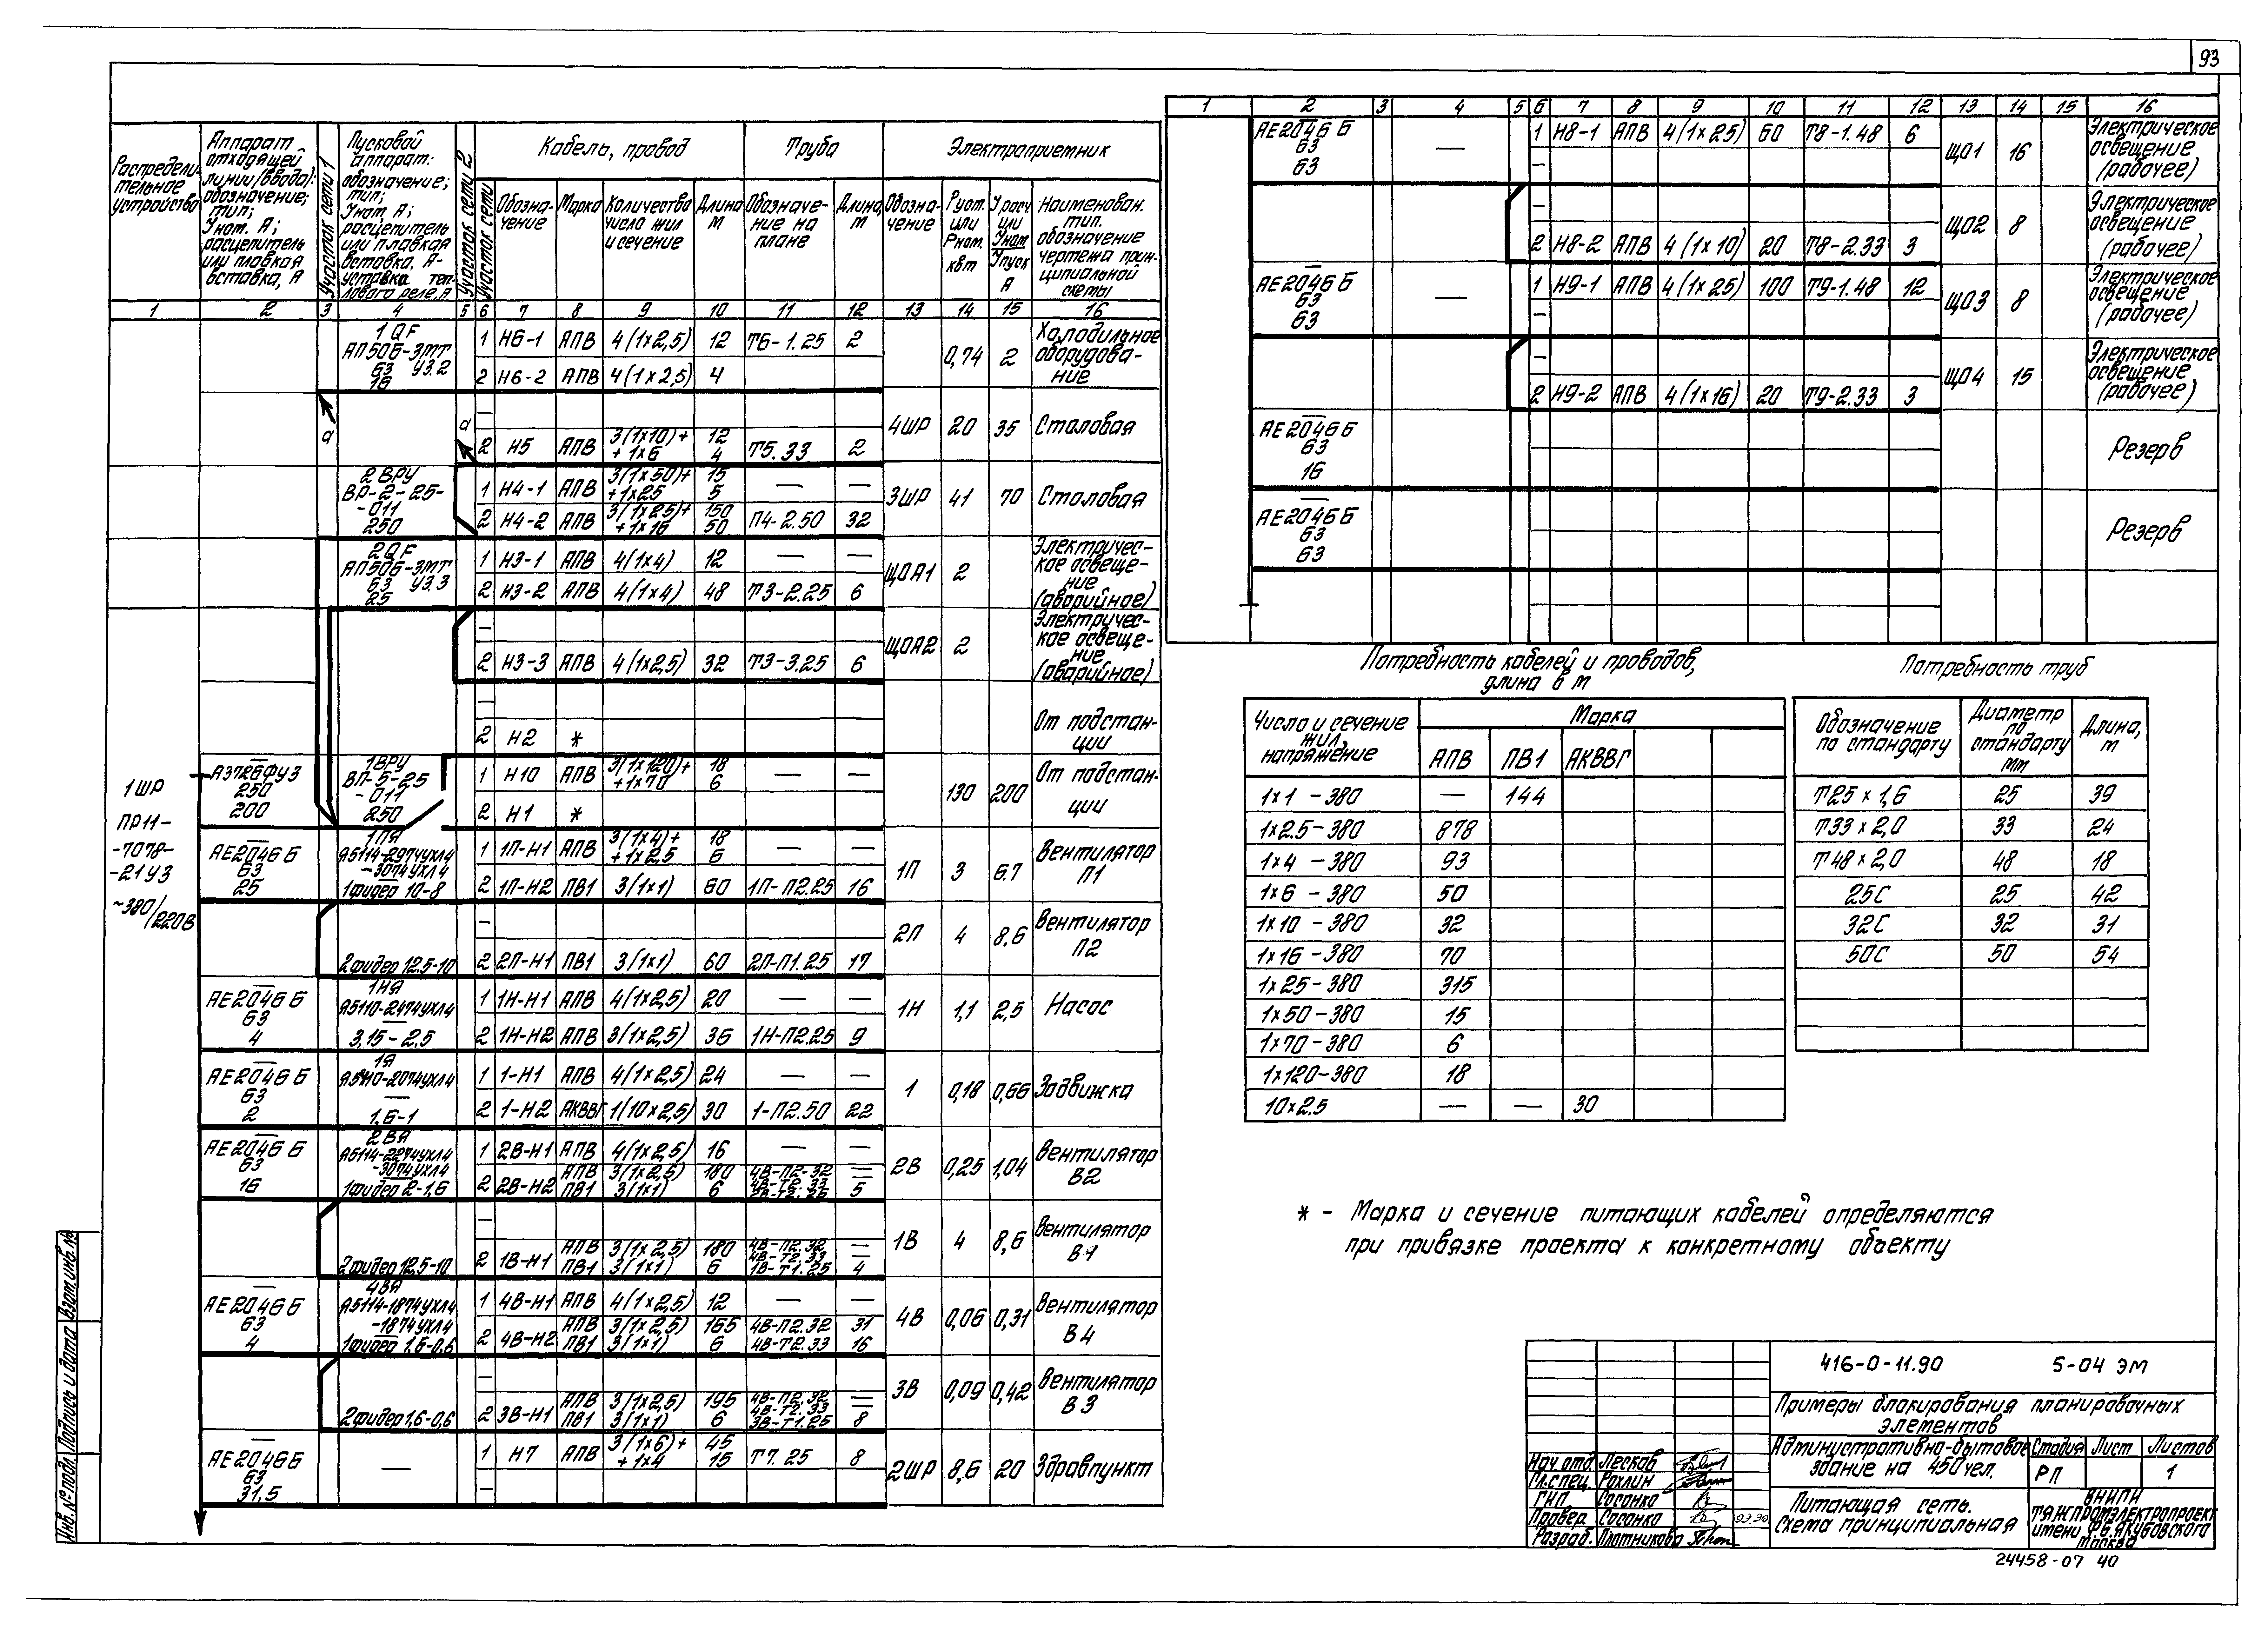 93
Распредели-
тельное
устройство
Аппарат
отходящей
линии (ввода):
обозначение;
тип;
Iном. А;
расцепитель
или плавкая
вставка, А
Участок сети 1
Пусковой
аппарат:
обозначение;
тип;
Iном, А;
расцепитель
или плавкая
вставка, А-
уставка теп-
лового реле, А
Участок сети 2
Участок сети
Кабель, провод
Обозна-
чение
Марка
Количество
число жил
и сечение
Длина
м
Труба
Обозначе-
ние на
плане
Длина,
м
Электроприемник
Обозна-
чение
Руст.
или
Рном.
кВт
Iрасч
или
Iном
Iпуск
А
Наименован.
тип.
обозначение
чертежа прин-
ципиальной
схемы
1 2 3 4 5 6 7 8 9 10 11 12 13 14 15 16
1ШР
ПР11-
-7078-
-21У3
~380/220В
1QF
АП50Б-3МТ
63 У3.2
16
1 Н6-1 АПВ 4(1×2,5) 12 Т6-1.25 2
2 Н6-2 АПВ 4(1×2,5) 4
0,74 2
Холодильное
оборудова-
ние
а
а
—
2 Н5 АПВ 3(1×10)+ 12
+1×6 4 Т5.33 2
4ШР 20 35 Столовая
2ВРУ
ВР-2-25-
-011
250
1 Н4-1 АПВ 3(1×50)+ 15 — —
+1×25 5
2 Н4-2 АПВ 3(1×25)+ 150 П4-2.50 32
+1×16 50
3ШР 41 70 Столовая
2QF
АП50Б-3МТ
63 У3.3
25
1 Н3-1 АПВ 4(1×4) 12 — —
2 Н3-2 АПВ 4(1×4) 48 Т3-2.25 6
ЩОА1 2
Электричес-
кое освеще-
ние
(аварийное)
—
2 Н3-3 АПВ 4(1×2,5) 32 Т3-3.25 6
ЩОА2 2
Электричес-
кое освеще-
ние
(аварийное)
—
2 Н2 *
От подстан-
ции
А3726ФУ3
250
200
1ВРУ
ВП-5-25
-011
250
1 Н10 АПВ 3(1×120)+ 18 — —
+1×70 6
2 Н1 *
130 200
От подстан-
ции
АЕ2046Б
63
25
1ПЯ
Я5114-2974УХЛ4
-3074УХЛ4
1фидер 10-8
1 1П-Н1 АПВ 3(1×4)+ 18 — —
+1×2.5 6
2 1П-Н2 ПВ1 3(1×1) 60 1П-П2.25 16
1П 3 6.7
Вентилятор
П1
2фидер 12.5-10
—
2 2П-Н1 ПВ1 3(1×1) 60 2П-П1.25 17
2П 4 8.6
Вентилятор
П2
АЕ2046Б
63
4
1НЯ
Я5110-2474УХЛ4
—
3,15-2,5
1 1Н-Н1 АПВ 4(1×2,5) 20 — —
2 1Н-Н2 АПВ 3(1×2,5) 36 1Н-П2.25 9
1Н 1,1 2,5 Насос
АЕ2046Б
63
2
1Я
Я5410-2074УХЛ4
—
1,6-1
1 1-Н1 АПВ 4(1×2,5) 24 — —
2 1-Н2 АКВВГ 1(10×2,5) 30 1-П2.50 22
1 0,18 0,66 Задвижка
АЕ2046Б
63
16
2ВЯ
Я5114-2274УХЛ4
-3074УХЛ4
1фидер 2-1,6
1 2В-Н1 АПВ 4(1×2,5) 16 — —
2 2В-Н2 АПВ 3(1×2,5) 180 4В-П2-32 —
4В-Т2.33 —
ПВ1 3(1×1) 6 2В-Т2.25 5
2В 0,25 1,04
Вентилятор
В2
2фидер 12,5-10
—
2 1В-Н1 АПВ 3(1×2,5) 180 4В-П2.32 —
4В-Т2.33 —
ПВ1 3(1×1) 6 1В-Т1.25 4
1В 4 8,6
Вентилятор
В1
АЕ2046Б
63
4
4ВЯ
Я5114-1874УХЛ4
-1874УХЛ4
1фидер 1,6-0,6
1 4В-Н1 АПВ 4(1×2,5) 12 — —
2 4В-Н2 АПВ 3(1×2,5) 165 4В-П2.32 31
ПВ1 3(1×1) 6 4В-Т2.33 16
4В 0,06 0,31
Вентилятор
В4
2фидер 1,6-0,6
—
2 3В-Н1 АПВ 3(1×2,5) 195 4В-П2.32 —
4В-Т2.33 —
ПВ1 3(1×1) 6 3В-Т1.25 8
3В 0,09 0,42
Вентилятор
В3
АЕ2046Б
63
31,5
—
1 Н7 АПВ 3(1×6)+ 45 Т7.25 8
+1×4 15
—
2ШР 8,6 20 Здравпункт
1 2 3 4 5 6 7 8 9 10 11 12 13 14 15 16
АЕ2046Б
63
63
—
1 Н8-1 АПВ 4(1×25) 60 Т8-1.48 6
—
ЩО1 16
Электрическое
освещение
(рабочее)
—
2 Н8-2 АПВ 4(1×10) 20 Т8-2.33 3
ЩО2 8
Электрическое
освещение
(рабочее)
АЕ2046Б
63
63
—
1 Н9-1 АПВ 4(1×25) 100 Т9-1.48 12
—
ЩО3 8
Электрическое
освещение
(рабочее)
—
2 Н9-2 АПВ 4(1×16) 20 Т9-2.33 3
ЩО4 15
Электрическое
освещение
(рабочее)
АЕ2046Б
63
16
Резерв
АЕ2046Б
63
63
Резерв
Потребность кабелей и проводов,
длина в м
Число и сечение
жил,
напряжение
Марка
АПВ ПВ1 АКВВГ
1×1 -380 — 144
1×2.5-380 878
1×4 -380 93
1×6 -380 50
1×10 -380 32
1×16 -380 70
1×25-380 315
1×50-380 15
1×70-380 6
1×120-380 18
10×2.5 — — 30
Потребность труб
Обозначение
по стандарту
Диаметр
по
стандарту
мм
Длина,
м
Т25×1,6 25 39
Т33×2,0 33 24
Т48×2,0 48 18
25С 25 42
32С 32 31
50С 50 54
* - Марка и сечение питающих кабелей определяются
при привязке проекта к конкретному объекту
416-0-11.90 5-04 ЭМ
Примеры блокирования планировочных
элементов
Административно-бытовое
здание на 450 чел.
Стадия Лист Листов
РП 1
Питающая сеть.
Схема принципиальная
ВНИПИ
ТЯЖПРОМЭЛЕКТРОПРОЕКТ
имени Ф.Б.Якубовского
Москва
Нач.отд. Лесков
Гл.спец. Рохлин
ГИП Сосонко
Провер. Сосонко 03.90
Разраб. Плотникова
24458-07 40
Инв. № подл. Подпись и дата Взам. инв. №